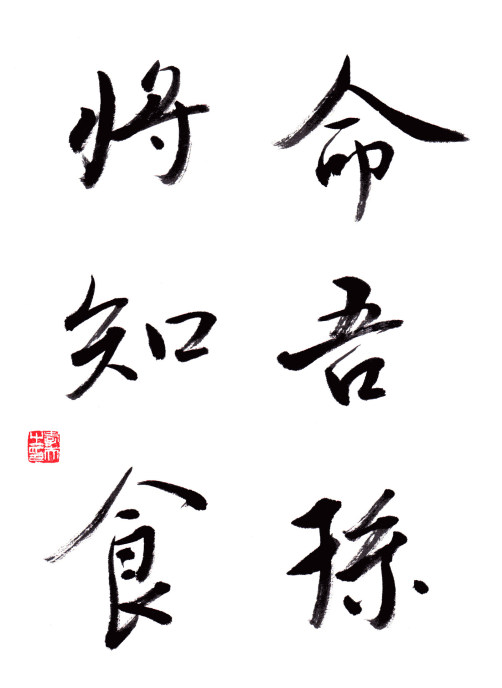 命吾孫
将知食